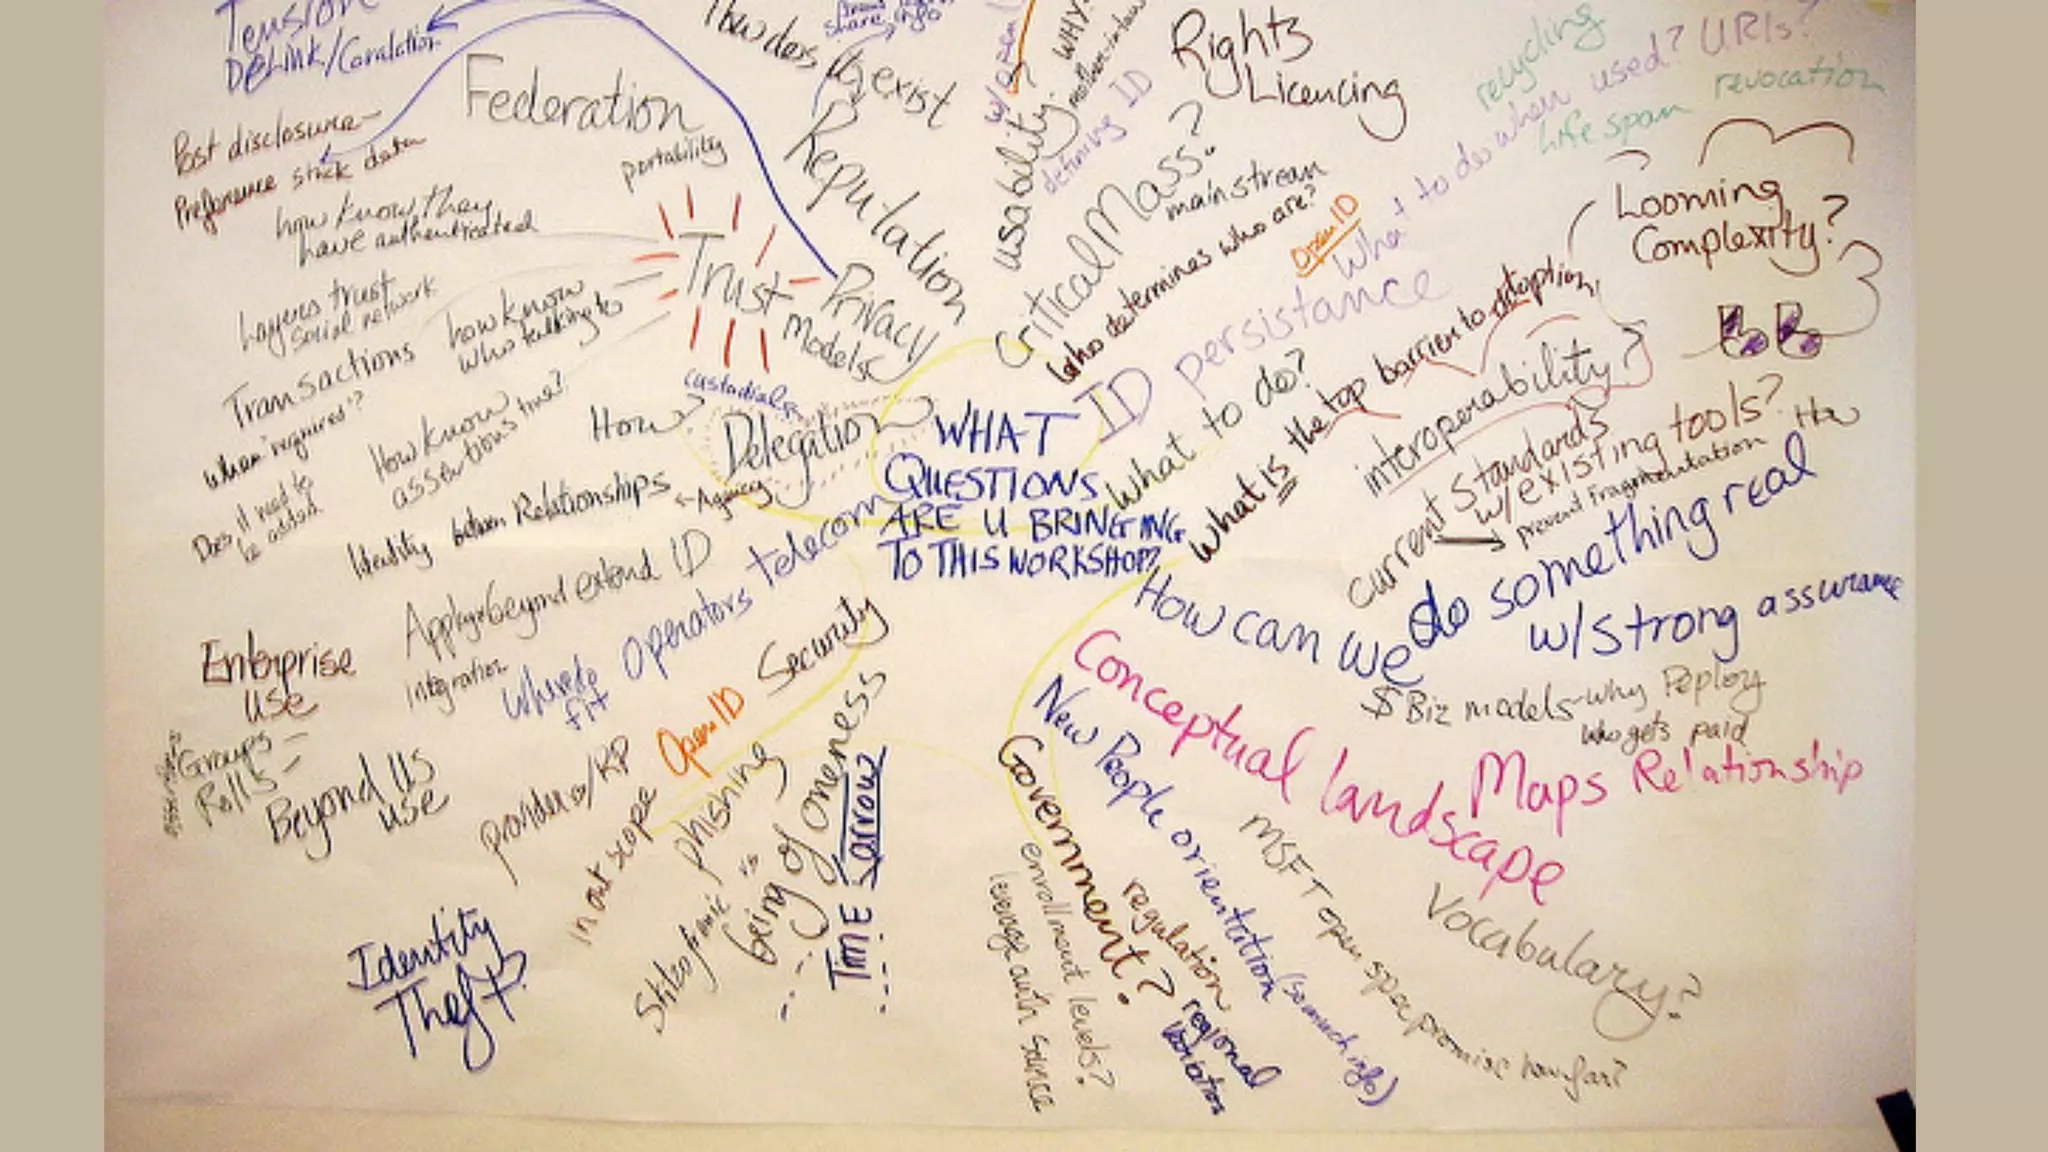 Tension
DeLink/Corralation
Post disclosure
Preference stick data
Federation
portability
how know they
have authenticated
Layers trust
social network
how know
who talking to
Transactions
when "required"?
Does it need to
be added
How know
assertions true?
Trust
models
Privacy
Reputation
How does
exist
share info
usability
WHY?
defining ID
Rights
Licencing
Critical Mass?
mainstream
who determines who are?
OpenID
ID persistance
What to do when used? URIs?
recycling
life span
revocation
Looming
Complexity?
What to do?
What is the top barrier to adoption
interoperability?
current Standards
w/existing tools?
prevent fragmentation
custodial
Delegation
How?
Agency
Identity between Relationships
WHAT
QUESTIONS
ARE U BRINGING
TO THIS WORKSHOP?
Apply beyond extend ID
integration
where do
fit
operators telecom
Enterprise
use
Groups
Rolls
Beyond US
use
provider/RP
OpenID
Security
in out scope
phishing
being of oneness
TIME Sarrow?
Identity
Theft?
How can we
do something real
w/strong assurance
$ Biz models - why Deploy
who gets paid
Conceptual landscape
Maps Relationship
New People orientation (so much info)
MSFT open spec promise how far?
Vocabulary?
Government?
regulation
regional
variations
enrollment levels?
leverage auth source